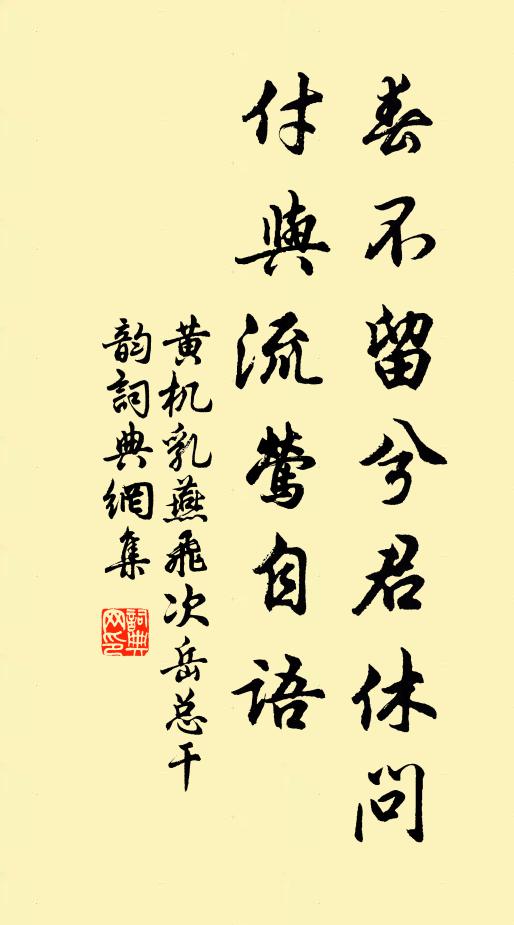 春不留兮君休问
付與流莺自语
黄机乳燕飛次岳总干
韵詞典網集
詞典网印